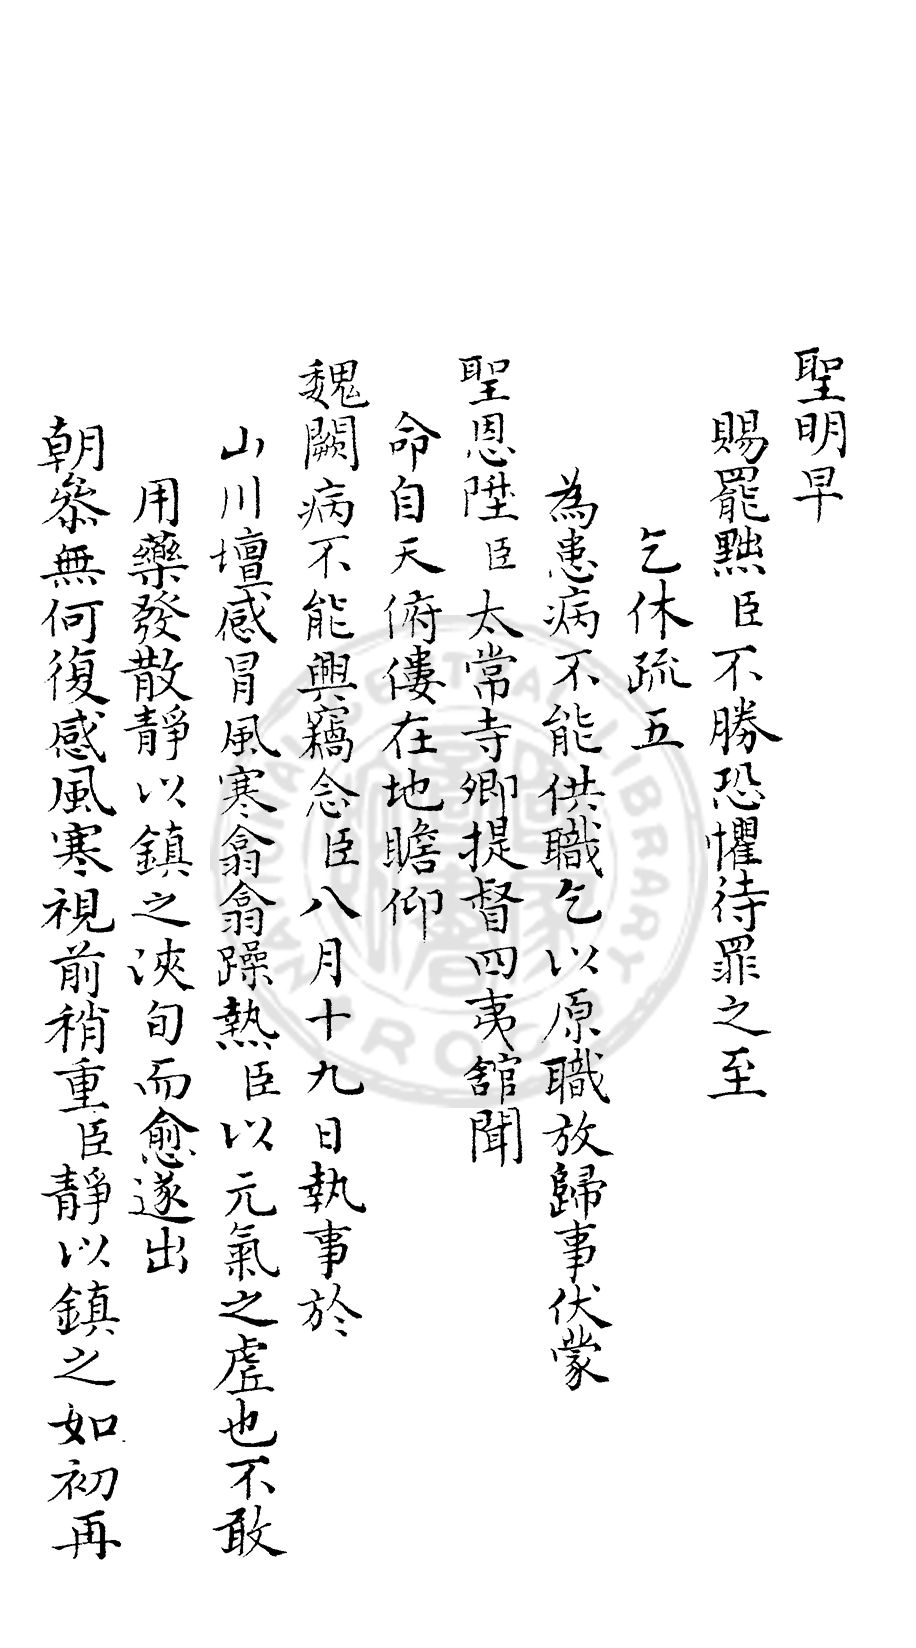 聖明早
賜罷黜臣不勝恐懼待罪之至
乞休疏五
為患病不能供職乞以原職放歸事伏蒙
聖恩陞臣太常寺卿提督四夷舘聞
命自天俯僂在地瞻仰
魏闕病不能興竊念臣八月十九日執事於
山川壇感冒風寒翕翕躁熱臣以元氣之虗也不敢
用藥發散靜以鎮之浹旬而愈遂出
朝叅無何復感風寒視前稍重臣靜以鎮之如初再
NATIONAL CENTRAL LIBRARY
R.O.C.